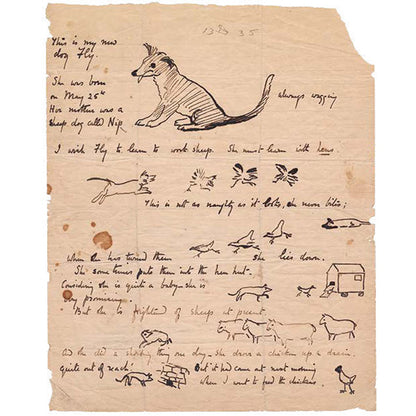 This is my new
dog Fly.
She was born
on May 25th
Her mother was a
sheep dog called Nip.
always wagging
I wish Fly to learn to work sheep. She must learn with hens.
This is not as naughty as it looks, she never bites;
when she has turned them
she lies down.
She sometimes puts them into the hen hut.
Considering she is quite a baby she is
very promising.
But she is frightened of sheep at present.
And she did a shocking thing one day - she drove a chicken up a drain.
quite out of reach!
But it had come out next morning
when I went to feed the chickens.